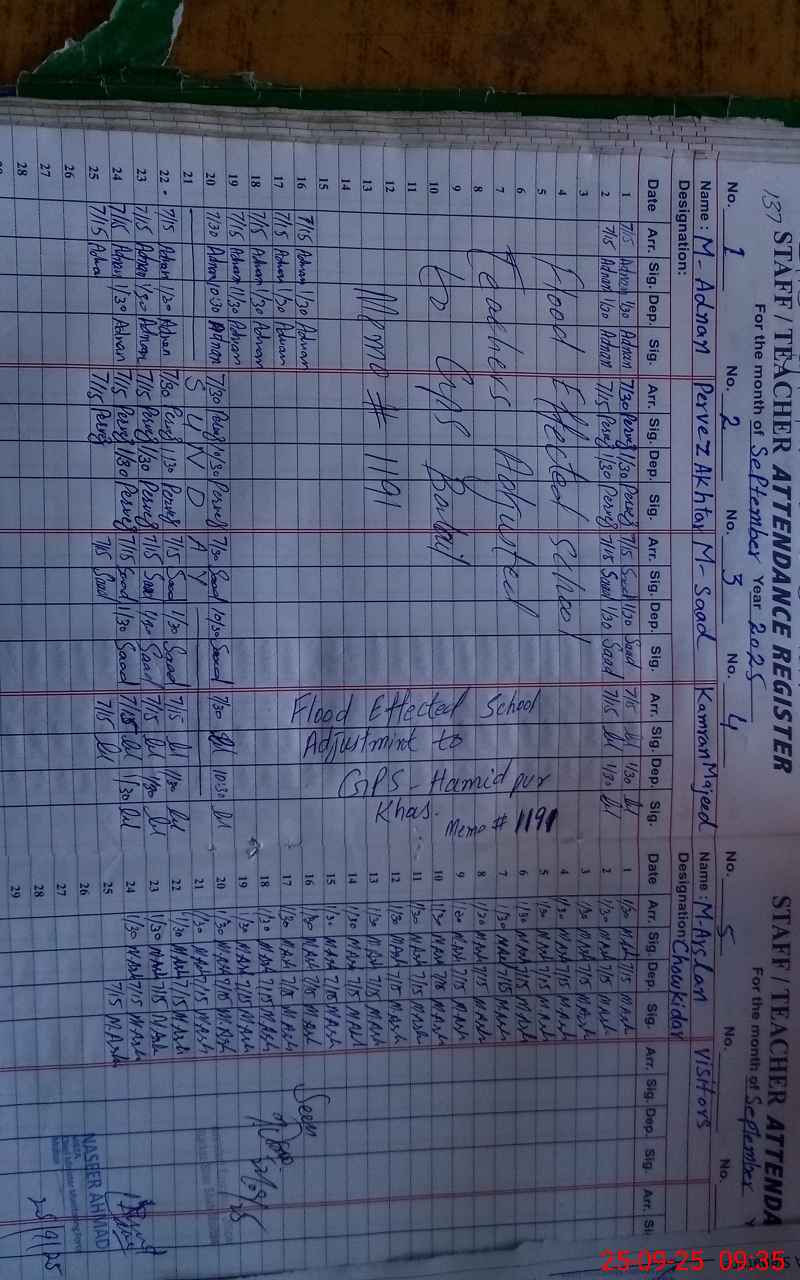 137 STAFF / TEACHER ATTENDANCE REGISTER
For the month of September Year 2025
No. 1 No. 2 No. 3 No. 4
Name: M-Adnan Pervez Akhtar M-Saad Kamran Majeed
Designation:
Date Arr. Sig. Dep. Sig. Arr. Sig. Dep. Sig. Arr. Sig. Dep. Sig. Arr. Sig. Dep. Sig.
1 7/15 Adnan 1/30 Adnan 7/30 Pervez 1/30 Pervez 7/15 Saad 1/30 Saad 7/15 1/30
2 7/15 Adnan 1/30 Adnan 7/15 Pervez 1/30 Pervez 7/15 Saad 1/30 Saad 7/15 1/30
3
4 Flood Effected School
5
6
7 Teachers Adjusted
8
9
10 to GPS
11
12
13 Memo # 1191
14
15
Flood Effected School
Adjustmint to
GPS - Hamidpur
Khas.
Memo # 1191
16 7/15 Adnan 1/30 Adnan
17 7/15 Adnan 1/30 Adnan
18 7/15 Adnan 1/30 Adnan
19 7/15 Adnan 1/30 Adnan
20 7/30 Adnan 10:30 Adnan 7/30 Pervez 10/30 Pervez 7/30 Saad 10/30 Saad 7/30 10:30
21 S U N D A Y
22 7/15 Adnan 1/30 Adnan 7/30 Pervez 1/30 Pervez 7/15 Saad 1/30 Saad 7/15 1/30
23 7/15 Adnan 1/30 Adnan 7/15 Pervez 1/30 Pervez 7/15 Saad 1/30 Saad 7/15 1/30
24 7/15 Adnan 1/30 Adnan 7/15 Pervez 1/30 Pervez 7/15 Saad 1/30 Saad 7/15 1/30
25 7/15 Adnan 7/15 Pervez 7/15 Saad 7/15
26
27
28
STAFF / TEACHER ATTENDA
For the month of September Y
No. 5 No. No.
Name: M-Arslan Visitors
Designation Chowkidar
Date Arr. Sig. Dep. Sig. Arr. Sig. Dep. Sig. Arr. Si
1 1/30 M.Arsh 7/15 M.Arsh
2 1/30 M.Arsh 7/15 M.Arsh
3 1/30 M.Arsh 7/15 M.Arsh
4 1/30 M.Arsh 7/15 M.Arsh
5 1/30 M.Arsh 7/15 M.Arsh
6 1/30 M.Arsh 7/15 M.Arsh
7 1/30 M.Arsh 7/15 M.Arsh
8 1/30 M.Arsh 7/15 M.Arsh
9 1/30 M.Arsh 7/15 M.Arsh
10 1/30 M.Arsh 7/15 M.Arsh
11 1/30 M.Arsh 7/15 M.Arsh
12 1/30 M.Arsh 7/15 M.Arsh
13 1/30 M.Arsh 7/15 M.Arsh
14 1/30 M.Arsh 7/15 M.Arsh
15 1/30 M.Arsh 7/15 M.Arsh
16 1/30 M.Arsh 7/15 M.Arsh
17 1/30 M.Arsh 7/15 M.Arsh
18 1/30 M.Arsh 7/15 M.Arsh
19 1/30 M.Arsh 7/15 M.Arsh
20 1/30 M.Arsh 7/15 M.Arsh
21 1/30 M.Arsh 7/15 M.Arsh
22 1/30 M.Arsh 7/15 M.Arsh
23 1/30 M.Arsh 7/15 M.Arsh
24 1/30 M.Arsh 7/15 M.Arsh
25 7/15 M.Arsh
26
27
28
29
Seen
NASEER AHMAD
25/9/25
25-09-25 09:35